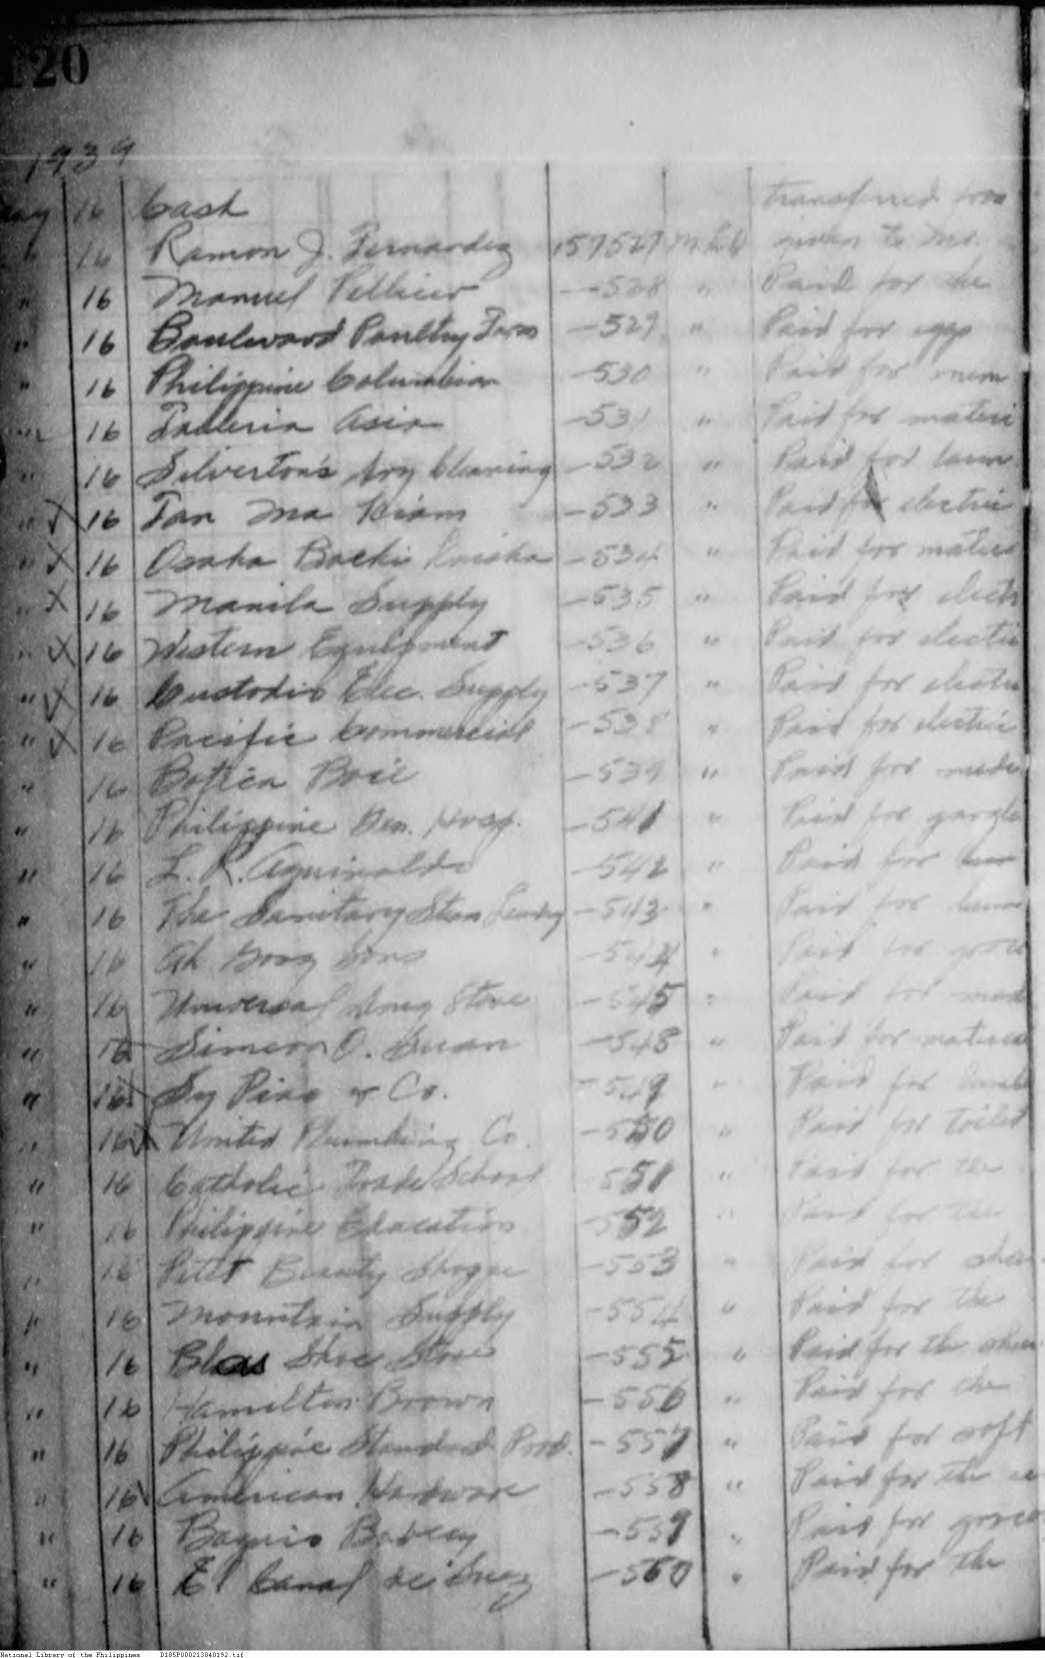 120
1939
May 16 Cash transferred from
" 16 Ramon J. Fernandez 157527 given to Mr.
" 16 Manuel Pellicer -528 " Paid for the
" 16 Boulevard Poultry Farm -529 " Paid for eggs
" 16 Philippine Columbian -530 " Paid for
" 16 Asia -531 " Paid for materi
" 16 Silverton's Dry Cleaning -532 " Paid for laun
" 16 Tan Ma Kiam -533 " Paid for electric
" X 16 Osaka Boeki Kaisha -534 " Paid for mater
" X 16 Manila Supply -535 " Paid for electr
" X 16 Western Equipment -536 " Paid for electri
" X 16 Custodio Elec. Supply -537 " Paid for electri
" X 16 Pacific Commercial -538 " Paid for electric
" 16 Botica Boie -539 " Paid for medi
" 16 Philippine Gen. Hosp. -541 " Paid for gargle
" 16 L. R. Aguinaldo -542 " Paid for
" 16 The Sanitary Steam Laundry -543 " Paid for laun
" 16 Ah Gong Sons -544 " Paid for groce
" 16 Universal Drug Store -545 " Paid for med
" 16 Simeon O. -548 " Paid for materia
" 16 Sy Piao & Co. -549 " Paid for
" 16 X United Plumbing Co. -550 " Paid for toilet
" 16 Catholic Trade School -551 " Paid for the
" 16 Philippine Education -552 " Paid for the
" 16 Beauty Shoppe -553 " Paid for
" 16 Mountain Supply -554 " Paid for the
" 16 Blas Shoe Store -555 " Paid for the shoe
" 16 Hamilton Brown -556 " Paid for the
" 16 Philippine Standard Prod. -557 " Paid for soft
" 16 American Hardware -558 " Paid for the
" 16 Baguio Bakery -559 " Paid for groce
" 16 El Canal de Suez -560 " Paid for the
National Library of the Philippines D185P000213840192.tif